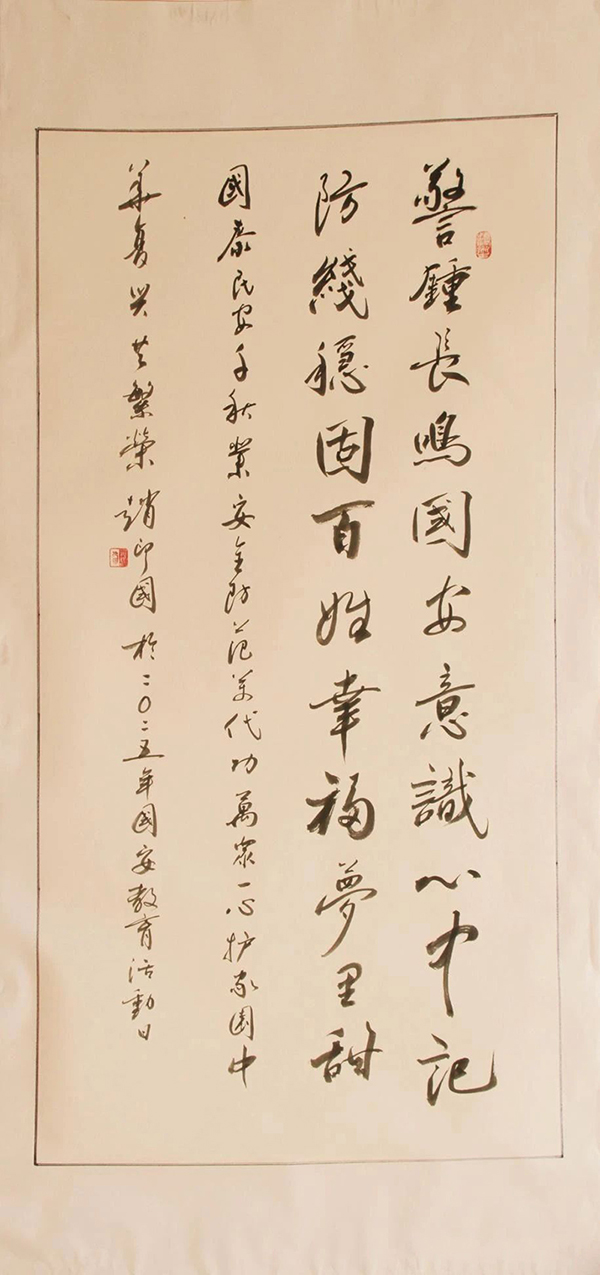 警鍾長鳴國安意識心中記
防綫穩固百姓幸福夢里甜
國泰民安千秋業安全防范萬代功萬众一心护家園中
華复兴共繁榮趙印國於二〇二五年國安教育活動日